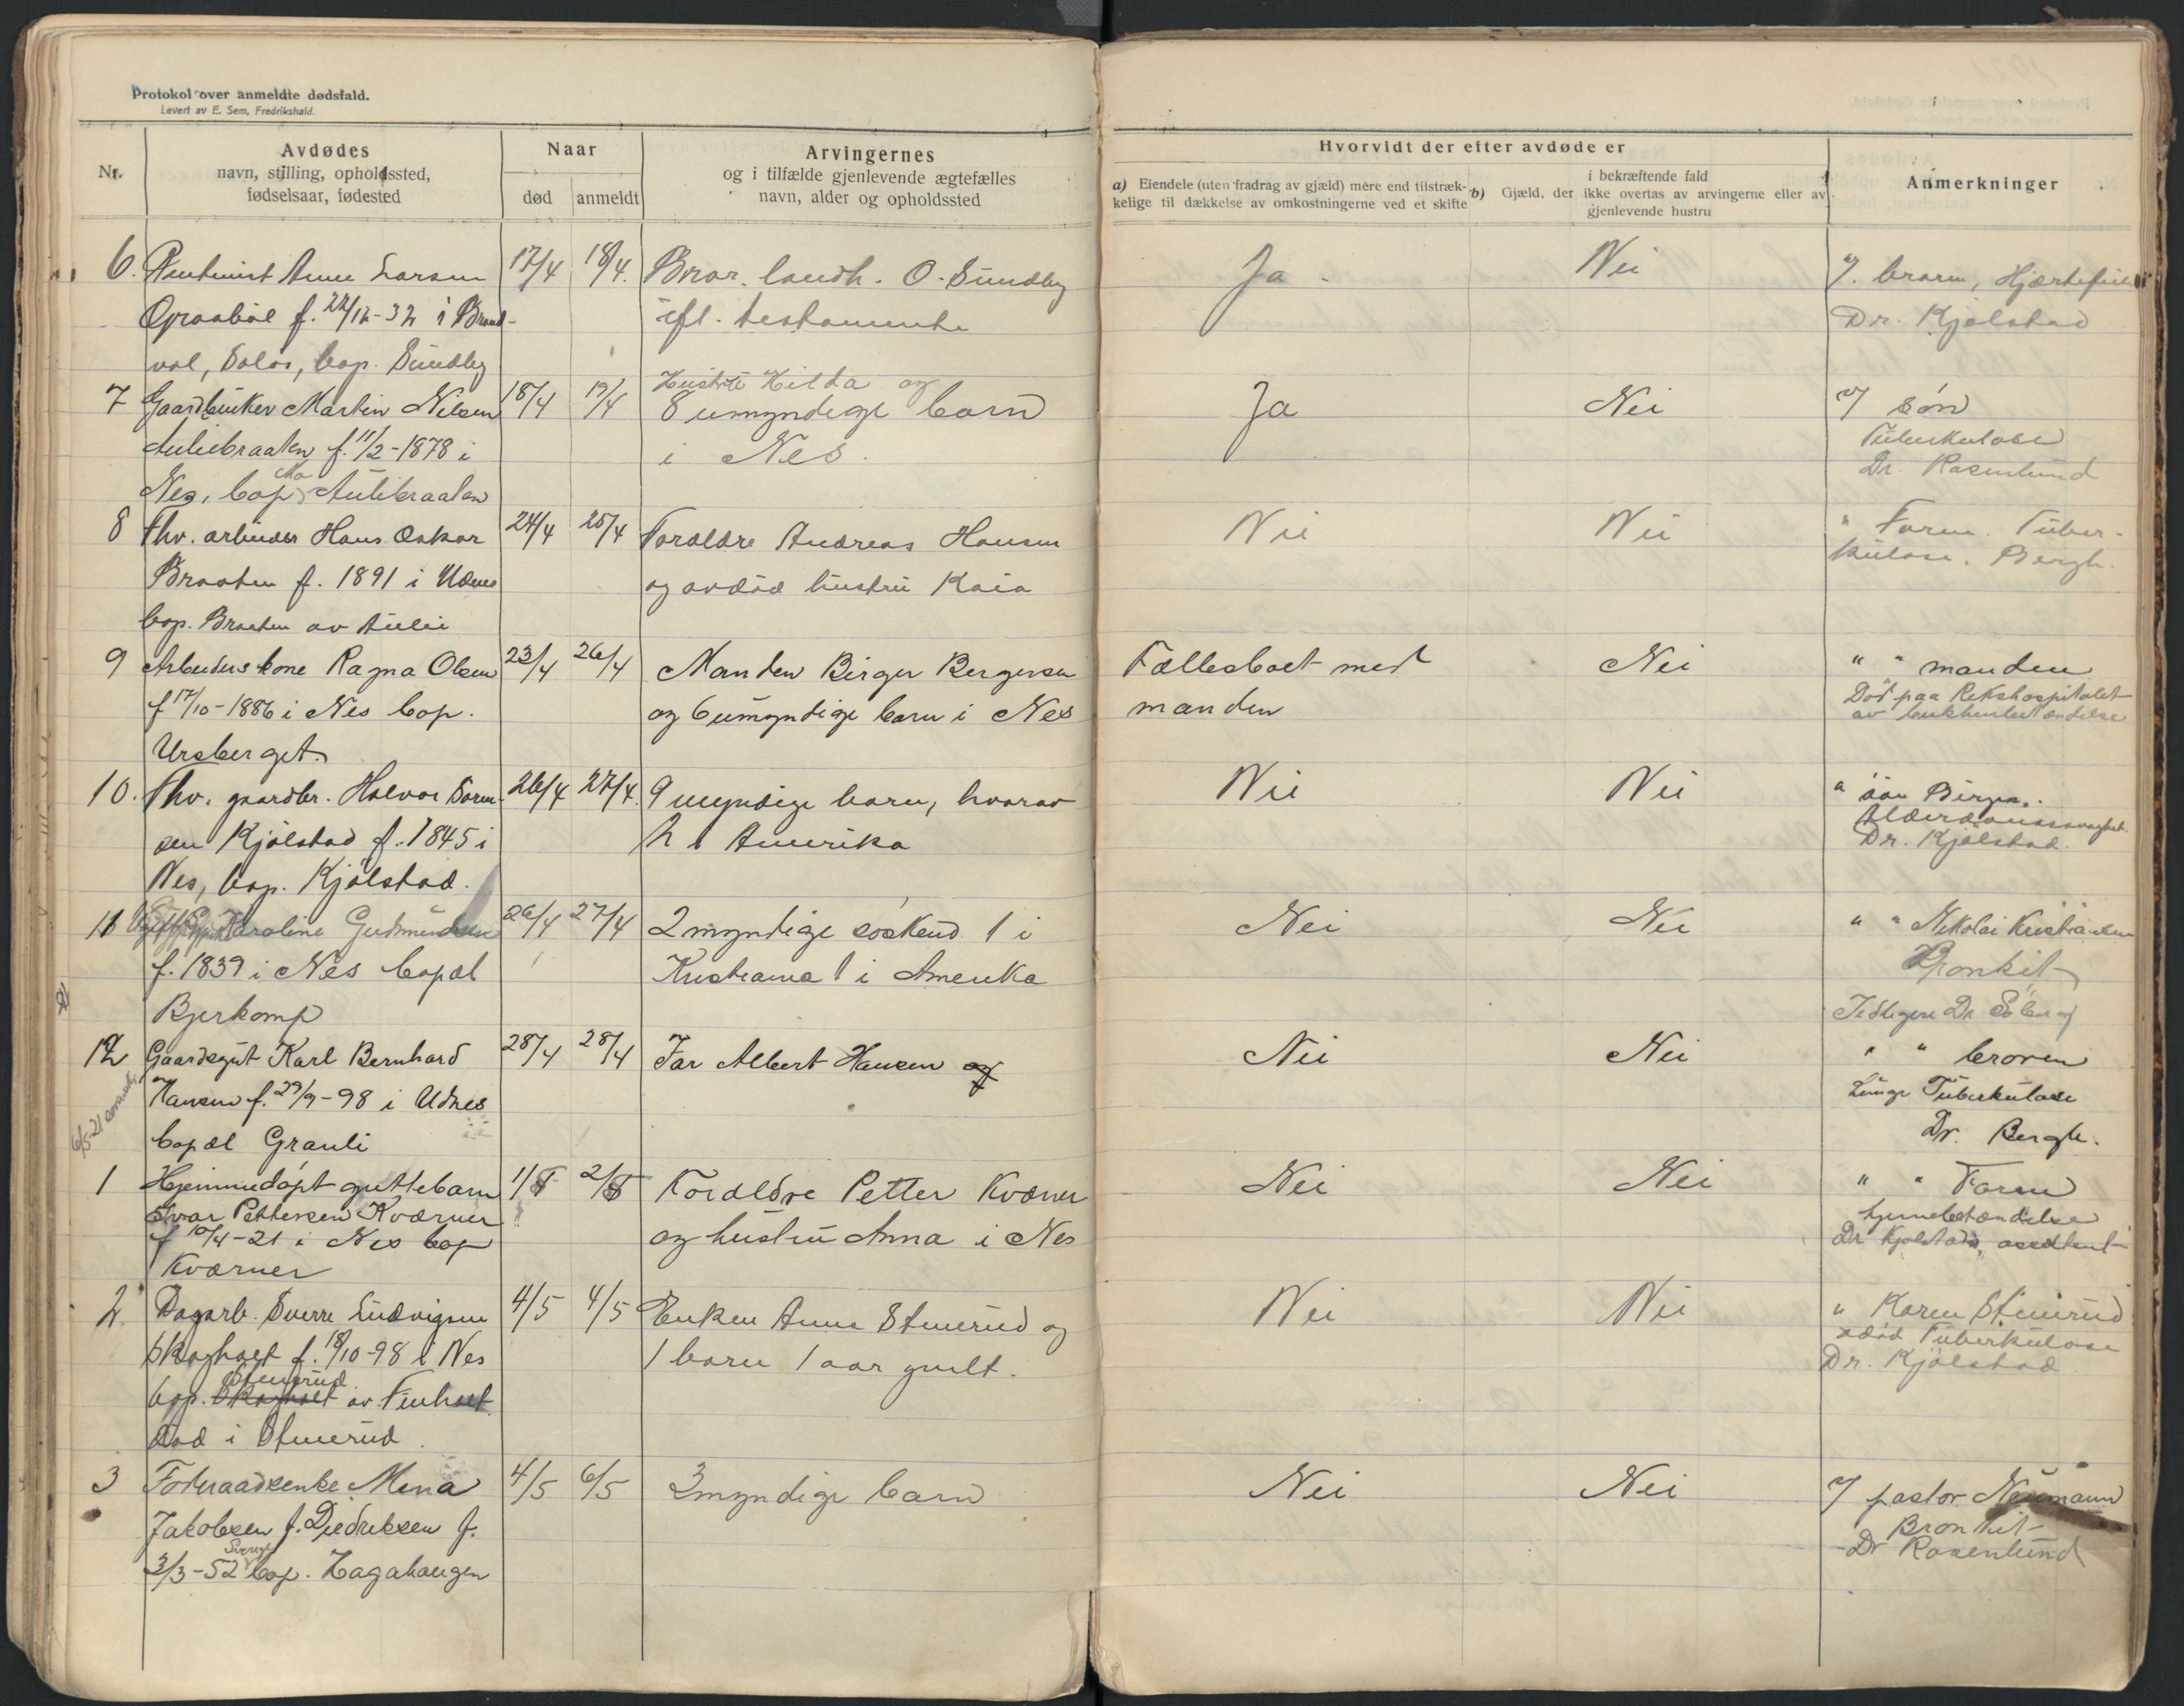 Protokol over anmeldte dødsfald.
Levert av E. Sem, Fredrikshald.
Nr.
Avdødes
navn, stilling, opholdssted,
fødselsaar, fødested
Naar
død
anmeldt
Arvingernes
og i tilfælde gjenlevende ægtefælles
navn, alder og opholdssted
Hvorvidt der efter avdøde er
a) Eiendele (uten fradrag av gjæld) mere end tilstræk-
kelige til dækkelse av omkostningerne ved et skifte
b) Gjæld, der
i bekræftende fald
ikke overtas av arvingerne eller av
gjenlevende hustru
Anmerkninger
6. Rentenist Anne Larsen 17/4 18/4. Bror. landh. O. Sundby Ja Nei v/ broren, Hjærtefeil
Opaabøl f. 22/12-32 i Brand- ifl. testamente Dr. Kjølstad
val, Solør, bop. Sundby
7 Gaardbruker Martin Nilsen 18/4 19/4 Hustru Hilda og
8 umyndige barn Ja Nei v/ søn
Auliebraaten f. 11/2-1878 i i Nes. Tuberkulose
Nes, bop. Aulibraaten Dr. Rosenlund
8 Fhv. arbeider Hans Oskar 24/4 25/4 Forældre Andreas Hansen Nei Nei " Faren. Tuber-
Braaten f. 1891 i Udnes og avdød hustru Kaia kulose. Bergh.
bop. Braaten av Aulie
9 Arbeiderskone Ragna Olsen 23/4 26/4 Manden Birger Bergersen Fællesboet med Nei " " manden
f 17/10-1886 i Nes bop. og 6 umyndige barn i Nes manden Død paa Rikshospitalet
av bukhindebetændelse
Ursberget.
10. Fhv. gaardbr. Halvor Søren- 26/4 27/4. 9 myndige barn, hvorav Nei Nei " søn Birger.
sen Kjølstad f. 1845 i 2 i Amerika Alderdomssvaghet.
Nes, bop. Kjølstad. Dr. Kjølstad.
11 Karoline Gudmundsen 26/4 27/4 2 myndige søskend 1 i Nei Nei " " Nikolai Kristiansen
f. 1839 i Nes bopæl Kristiania 1 i Amerika Bronkit
Bjerkomp Tidligere Dr Söberg
12 Gaardsgut Karl Bernhard 28/4 28/4 Far Albert Hansen og Nei Nei " " broren
Hansen f. 29/9-98 i Udnes Lunge Tuberkulose
bopæl Granli Dr. Bergh.
6/5-21
1 Hjemmedøpt guttebarn 1/5 2/5 Forældre Petter Kværner Nei Nei " " Faren
Ivar Pettersen Kværner hjernebetændelse
f 10/4-21 i Nes bop og hustru Anna i Nes Dr Kjølstads assistent
Kværner
2. Dagarb. Sverre Ludvigsen 4/5 4/5 Enken Anna Stenerud og Nei Nei " Karen Stenerud
Skogholt f. 18/10-98 i Nes 1 barn 1 aar gmlt. Tuberkulose
Dr. Kjølstad
Stenerud
bop. Skogholt av Finholt
død i Stenerud
3 Foderaadsenke Mina 4/5 6/5 3 myndige barn Nei Nei v/ pastor Neumann
Jakobsen f. Diedriksen f. Bronkit
Sverige
3/3-52 bop. Hagahaugen Dr Rosenlund